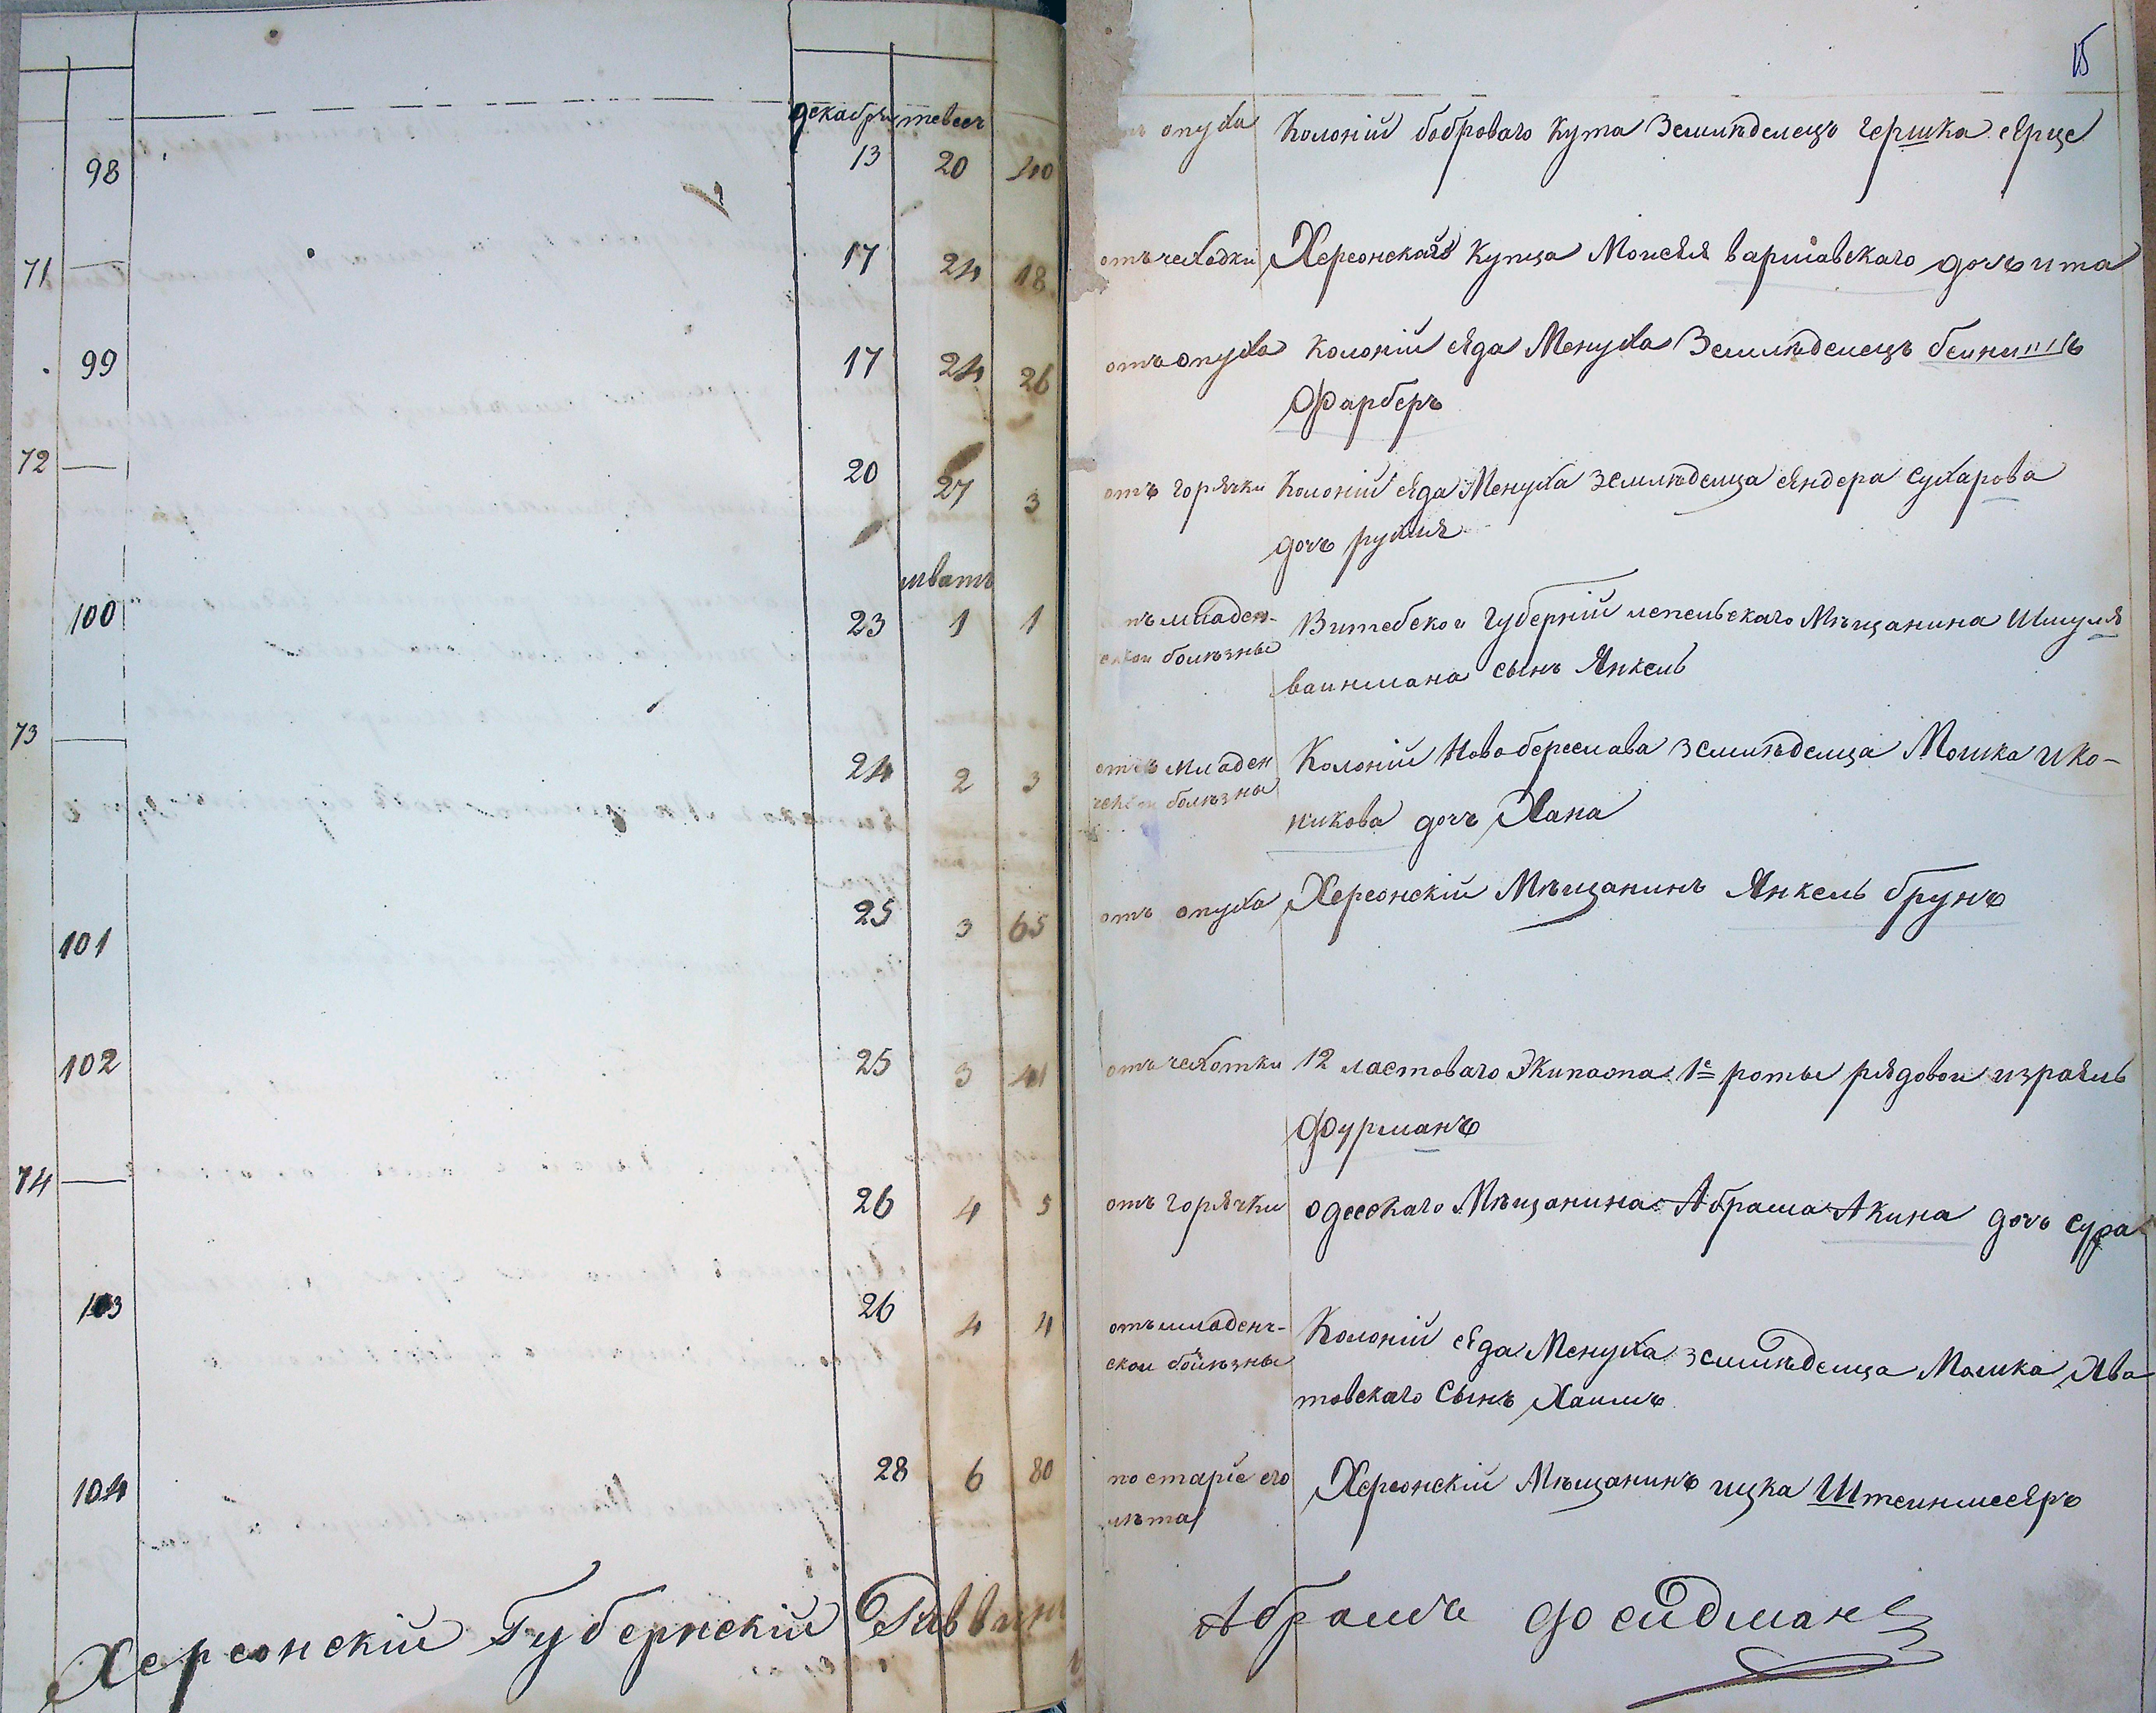 15
декабрь тевесъ
98 13 20 40 опуха Колоніи боброваго Кута Земледелецъ гершка Ярце
71 — 17 24 18 отъ чеходки Херсонскаго Купца Моисея варшавскаго дочь ита
99 17 24 26 отъ опуха Колоніи Яда Менуха Земледелецъ
Фарберъ
72 — 20 27 3 отъ горячки Колоніи Яда Менуха земледелца Яндера Сухарова
дочъ рухля
шватъ
100 23 1 1 отъ младен- Витебской губерніи лепельскаго Мѣщанина Шмуля
ской болѣзны ваинмана сынъ Янкель
73 — 24 2 3 отъ младен Колоніи Новоберислава земледелца Мошка ико-
ческой болѣзны никова дочъ Хана
101 25 3 65 отъ опуха Херсонскій Мѣщанинъ Янкель брунъ
102 25 3 41 отъ чехотки 12 ластоваго Экипажа 1й роты рядовои израель
фурманъ
74 — 26 4 5 отъ горячки одесскаго Мѣщанина Абрама Акина дочъ сура
103 26 4 4 отъ младенч- Колоніи Яда Менуха земледелца Мошка Хва
скои болѣзны товскаго Сынъ Хаимъ
104 28 6 80 по старіе его Херсонскій Мѣщанинъ ицка Штеинмееръ
лѣта
Херсонскій Губернскій Раввинъ Абрамъ Фейдман